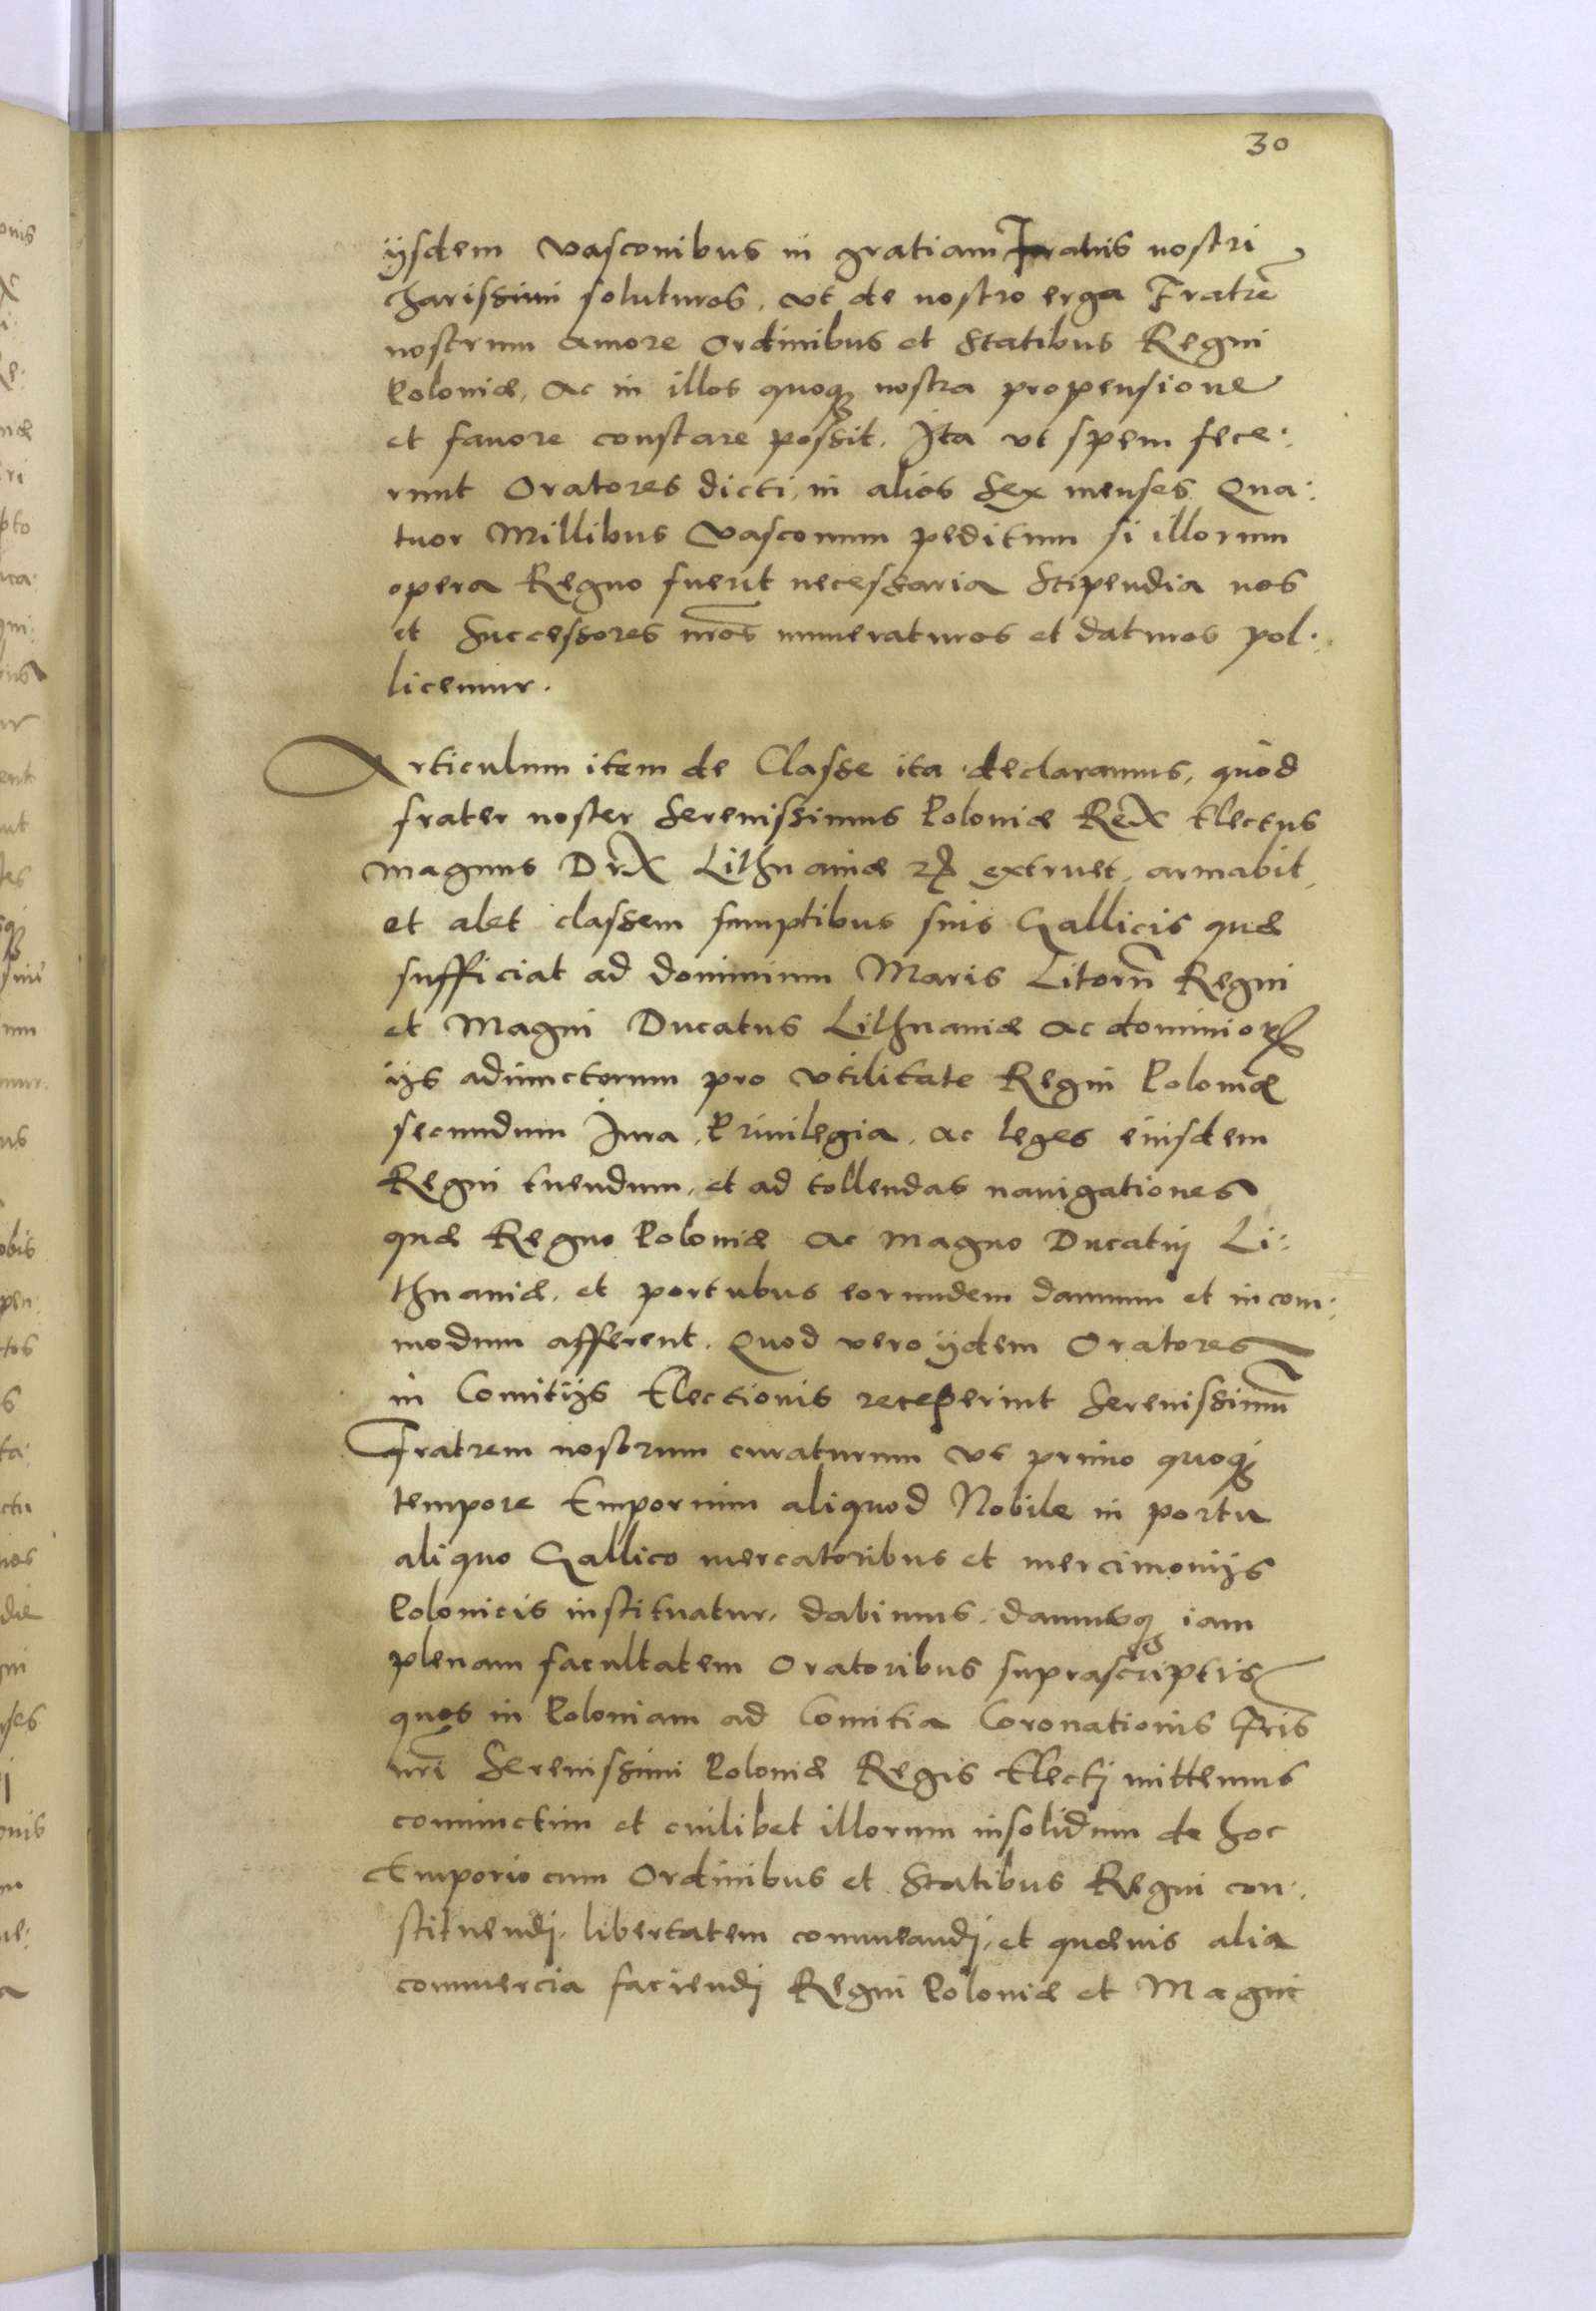 30
ijsdem vasconibus in gratiam Fratris nostri
charissimi soluturos, vt de nostro erga Fratrē
nostrum amore Ordinibus et Statibus Regni
Poloniæ, ac in illos quoqꝫ nostra propensione
et fauore constare possit. Ita vt spem fece:
runt Oratores dicti, in alios Sex menses Qua:
tuor Millibus Vasconum peditum si illorum
opera Regno fuerit necessaria Stipendia nos
et Successores nr̄os numeraturos et daturos pol:
licemur.
Articulum item de Classe ita declaramus, quòd
frater noster Serenissimus Poloniæ Rex Electus
magnus Dux Lithuaniæ ꝛc̄ extruet, armabit,
et alet classem sumptibus suis Gallicis quæ
sufficiat ad dominium Maris Litorū Regni
et Magni Ducatus Lithuaniæ ac dominioꝝ
ijs adiunctorum pro vtilitate Regni Poloniæ
secundum Iura, Priuilegia, ac leges eiusdem
Regni tuendum, et ad tollendas nauigationes
quæ Regno Poloniæ ac magno Ducatuj Li:
thuaniæ, et portubus eorundem damnum et incom:
modum afferent. Quod vero ijdem Oratores
in Comitijs Electionis receperint Serenissimū
Fratrem nostrum curaturum vt primo quoqꝫ
tempore Emporium aliquod Nobile in portu
aliquo Gallico mercatoribus et mercimonijs
Polonicis instituatur, dabimus, damusqꝫ iam
plenam facultatem Oratoribus suprascriptis
quos in Poloniam ad Comitia Coronationis Fr̄is
nr̄i Serenissimi Poloniæ Regis Electj mittemus
coniunctim et cuilibet illorum insolidum de hoc
Emporio cum Ordinibus et Statibus Regni con:
stituendj, libertatem commeandj, et quæuis alia
commercia faciendj Regni Poloniæ et Magni